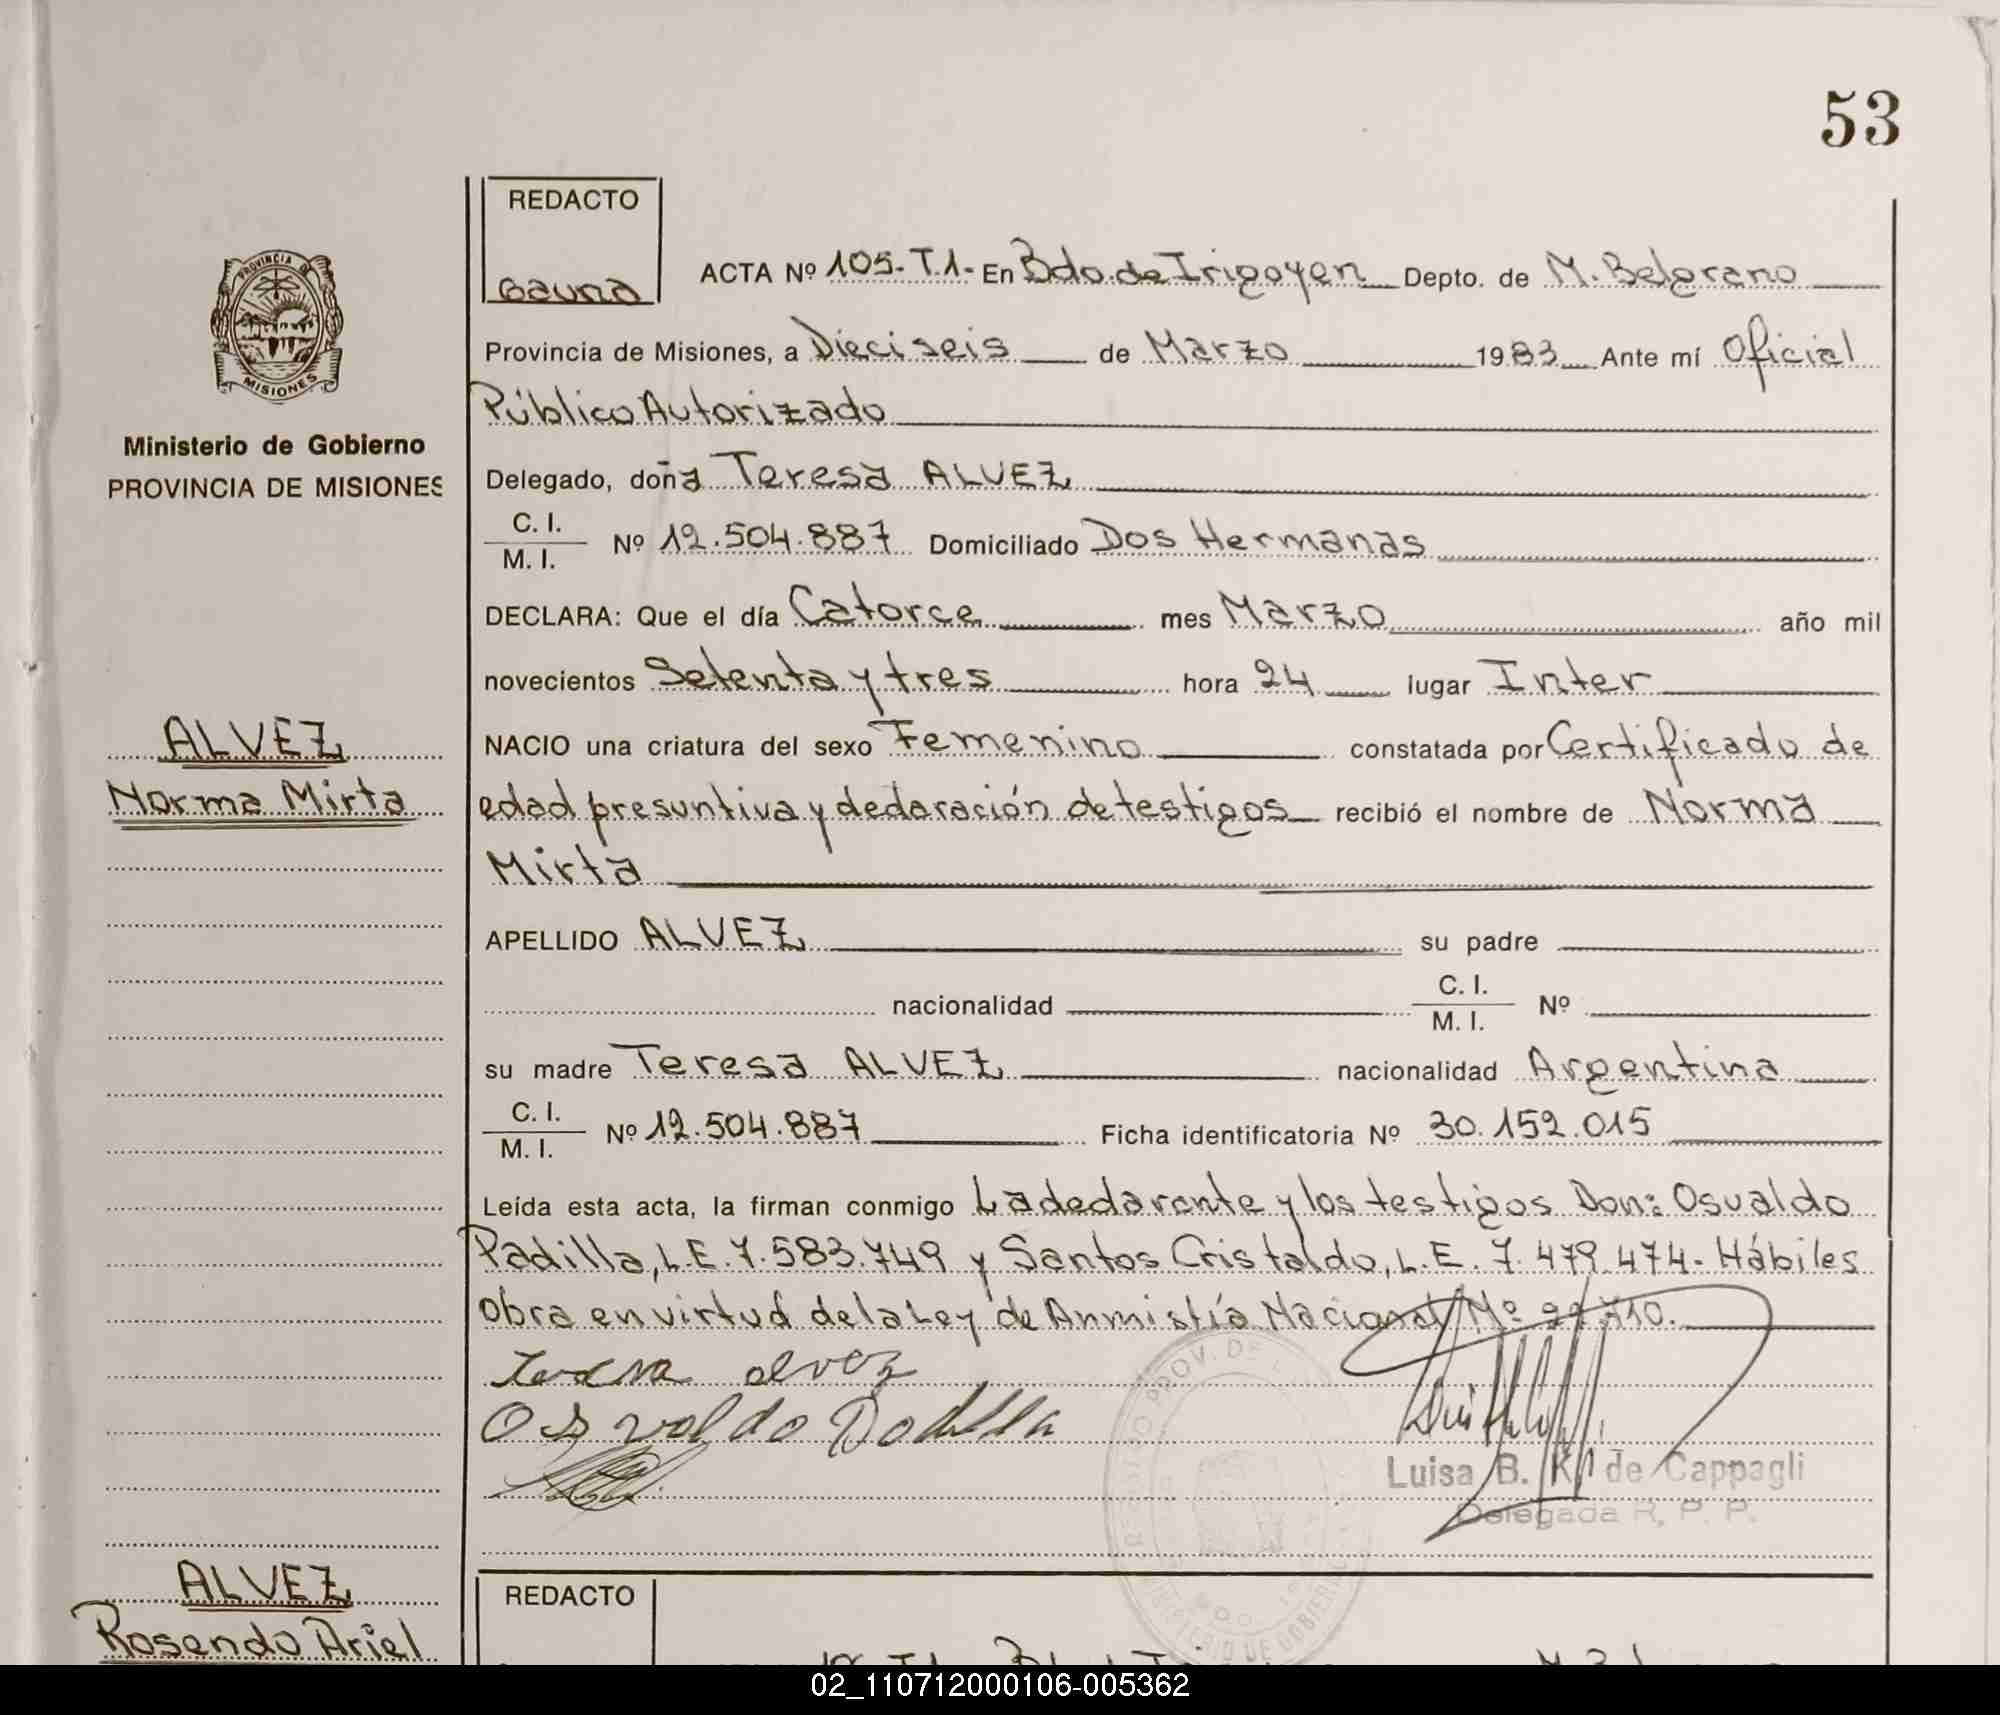 53
REDACTO
Gauna
ACTA Nº 105-T.1- En Bdo. de Irigoyen Depto. de M. Belgrano
Provincia de Misiones, a Dieciseis de Marzo 1983 Ante mí Oficial
Público Autorizado
Delegado, doña Teresa ALVEZ
C. I.
M. I.
Nº 12.504.887 Domiciliado Dos Hermanas
DECLARA: Que el día Catorce mes Marzo año mil
novecientos Setenta y tres hora 24 lugar Inter
NACIO una criatura del sexo Femenino constatada por Certificado de
edad presuntiva y declaración de testigos recibió el nombre de Norma
Mirta
APELLIDO ALVEZ su padre
nacionalidad C. I. Nº
M. I.
su madre Teresa ALVEZ nacionalidad Argentina
C. I.
M. I.
Nº 12.504.887 Ficha identificatoria Nº 30.152.015
Leída esta acta, la firman conmigo La declarante y los testigos Don: Osvaldo
Padilla, L.E. 7.583.749 y Santos Cristaldo, L.E. 7.479.474- Hábiles
Obra en virtud de la Ley de Anmistía Nacional Nº
Teresa alvez
Osvaldo Padilla
Luisa B. K. de Cappagli
Delegada R. P. P.
PROVINCIA DE
MISIONES
Ministerio de Gobierno
PROVINCIA DE MISIONES
ALVEZ
Norma Mirta
ALVEZ
Rosendo Ariel
REDACTO
02_110712000106-005362